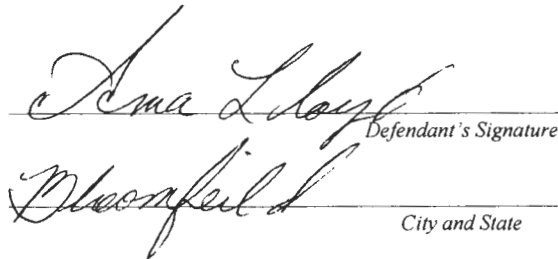 Ama Lloyd
Defendant's Signature
Bloomfeild
City and State